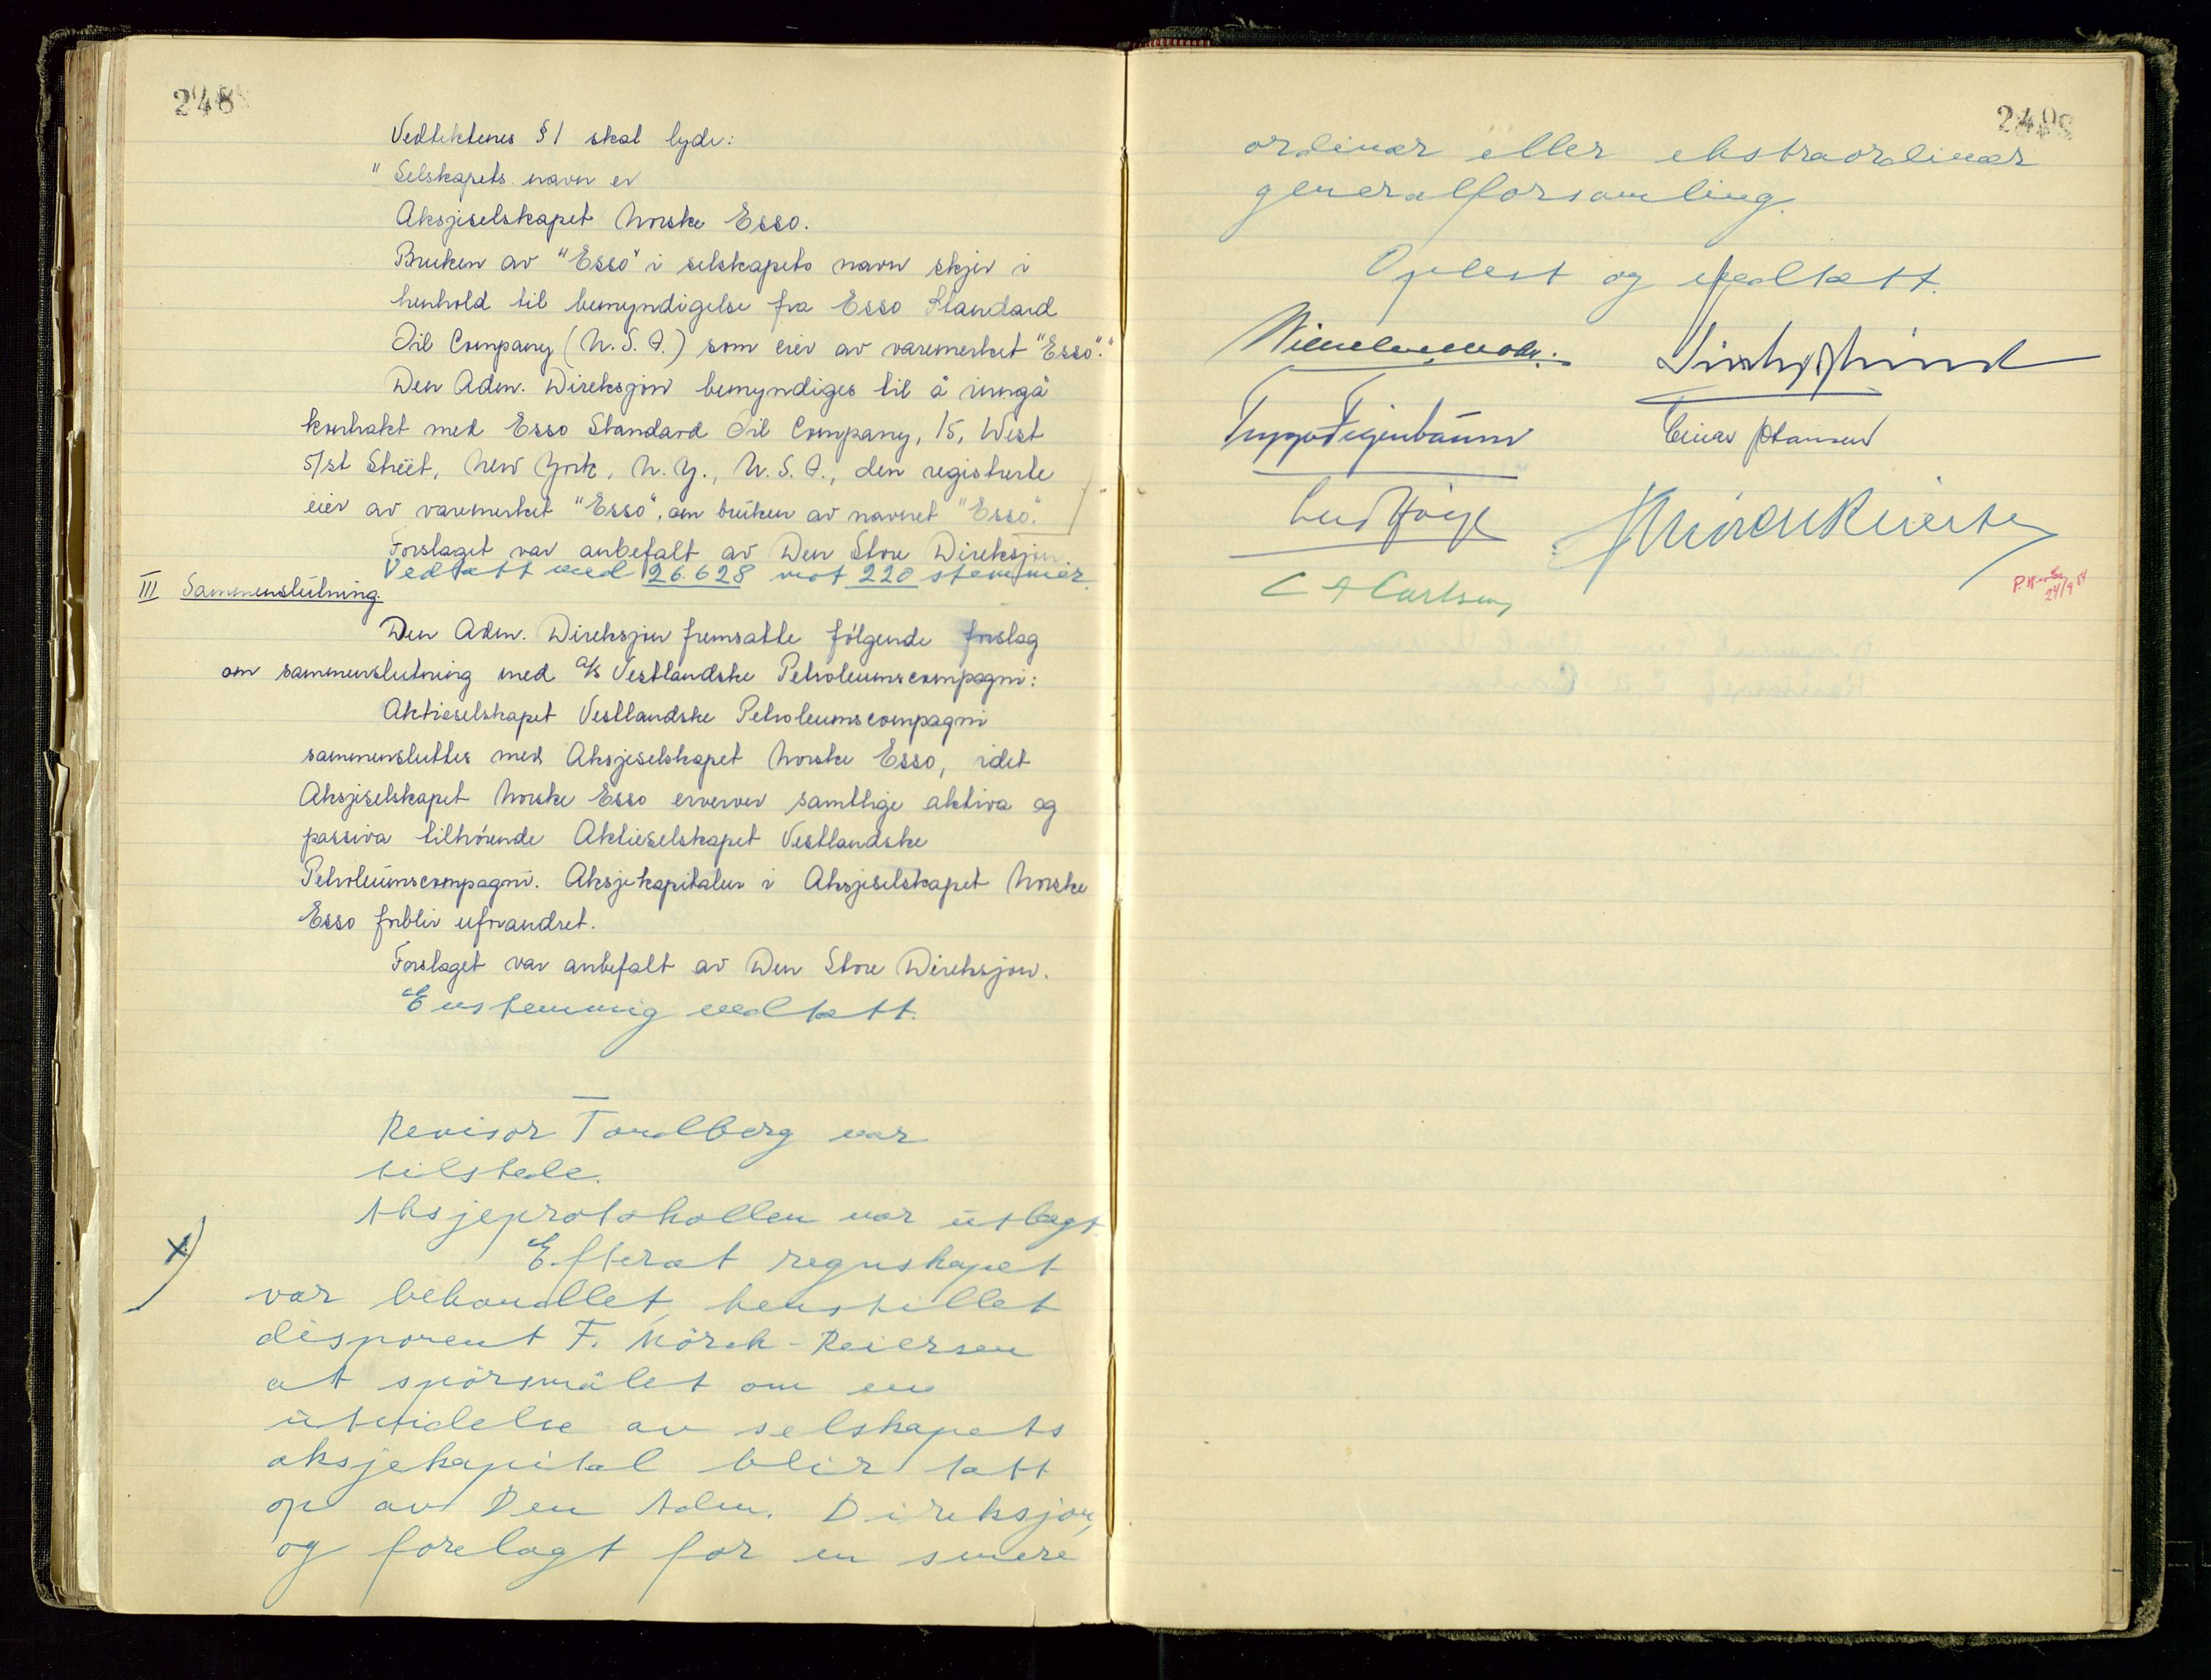 248
Vedtektenes § 1 skal lyde:
" Selskapets navn er
Aksjeselskapet Norske Esso.
Bruken av "Esso" i selskapets navn skjer i
henhold til bemyndigelse fra Esso Standard
Oil Company (U.S.A.) som eier av varemerket "Esso"."
Den Adm. Direksjon bemyndiges til å inngå
kontrakt med Esso Standard Oil Company, 15, West
51st Street, New York, N.Y., U.S.A., den registrerte
eier av varemerket "Esso", om bruken av navnet "Esso."
Forslaget var anbefalt av Den Store Direksjon.
Vedtatt med 26.628 mot 220 stemmer.
III Sammenslutning.
Den Adm. Direksjon fremsatte følgende forslag
om sammenslutning med A/S Vestlandske Petroleumscompagni:
Aktieselskapet Vestlandske Petroleumscompagni
sammensluttes med Aksjeselskapet Norske Esso, idet
Aksjeselskapet Norske Esso erverver samtlige aktiva og
passiva tilhørende Aktieselskapet Vestlandske
Petroleumscompagni. Aksjekapitalen i Aksjeselskapet Norske
Esso forblir uforandret.
Forslaget var anbefalt av Den Store Direksjon.
Enstemmig vedtatt.
Revisor Tandberg var
tilstede.
Aksjeprotokollen var utlagt.
x) Efterat regnskapet
var behandlet, henstillet
disponent F. Mörch-Reiersen
at spörsmålet om en
utvidelse av selskapets
aksjekapital blir tatt
op av Den Adm. Direksjon,
og forelagt for en senere
249
ordinær eller ekstraordinær
generalforsamling.
Oplest og vedtatt.
Wilhelm Mohr.
Trygve Figenbaum Einar Hansen
Leif Höegh F Mörch Reiersen
C A Carlsen
24/9 54